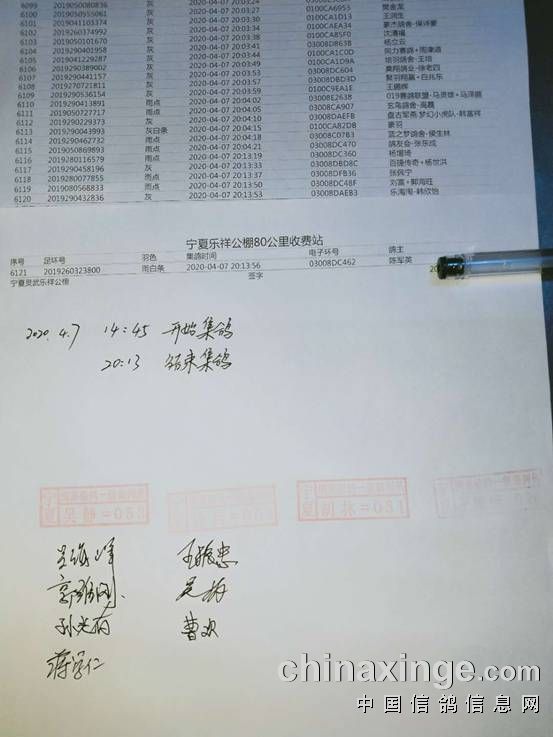 6099 2019050080836 灰 2020-04-07 20:03:24 0100CA6955 樊金龙
6100 2019050505051 灰
6101 2019041103374 灰 2020-04-07 20:03:30 0100CA1D13 王润生
6102 2019260374992 灰 2020-04-07 20:03:34 0100CAEA34 豪杰鸽舍-保沣豪
6103 2019050101670 灰 2020-04-07 20:03:40 0100CA85F0 沈清福
6104 2019290401958 灰 2020-04-07 20:03:41 03008DB63B 杨立云
6105 2019041229287 灰 2020-04-07 20:03:49 0100CA1C0D 同力赛鸽+周津道
6106 2019290389002 灰 2020-04-07 20:03:50 0100CA1D9A 培羽鸽舍-王培
6107 2019290441157 灰 2020-04-07 20:03:52 03008DC604 昊翔鸽业-徐老四
6108 2019270721811 灰 2020-04-07 20:03:57 03008DBD3D 聚羽翔赢+白兆东
6109 2019290536154 灰 2020-04-07 20:03:59 0100C9EA1E 王鹏辉
6110 2019290413891 雨点 2020-04-07 20:04:02 03008E2638 019赛鸽联盟-马灵雄+马泽鹏
6111 2019050727717 雨点 2020-04-07 20:04:05 03008CA907 玄鸟鸽舍-高晨
6112 2019290229373 灰 2020-04-07 20:04:10 03008DAEFB 盘古军燕 梦幻小虎队-韩富祥
6113 2019290043993 灰白条 2020-04-07 20:04:12 0100CA82DB 豪羽
6114 2019290462732 雨点 2020-04-07 20:04:18 03008C0783 蓝之梦鸽舍-侯生林
6115 2019050869893 雨点 2020-04-07 20:04:21 03008DC470 鸽友会-张东成
6116 2019280116579 雨点 2020-04-07 20:13:19 03008DC360 杨增琦
6117 2019290458196 灰 2020-04-07 20:13:33 03008DBD8C 百捷传奇+杨世洪
6118 2019280077855 雨点 2020-04-07 20:13:37 03008DFB36 张佩宁
6119 2019080568833 雨点 2020-04-07 20:13:50 03008DC48F 刘富+郭海旺
6120 2019290432836 灰 2020-04-07 20:13:53 03008DAEB3 乐海淘-韩欣怡
宁夏乐祥公棚80公里收费站
序号 足环号 羽色 集鸽时间 电子环号 鸽主
6121 2019260323800 雨白条 2020-04-07 20:13:56 03008DC462 陈军英 20
宁夏灵武乐祥公棚 签字
2020.4.7 14:45 开始集鸽
20:13 结束集鸽
王振忠
吴梅
孙光荫 曹欢
蒋学仁
chinaxinge.com
中国信鸽信息网